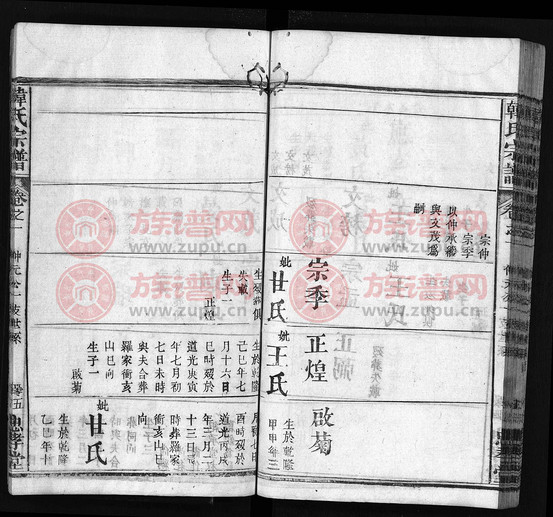 韓氏宗譜
卷之一
宗仲
宗季
以仲承繼
與文茂爲
嗣
宗季
妣甘氏
生歿葬俱
失載
生子一
正煌
正煌
妣王氏
生於乾隆
己巳年七
月十六日
巳時歿於
道光庚寅
年七月初
七日未時
與夫合葬
羅家衝亥
山巳向
生子一
啟菊
啟菊
生於乾隆
甲申年三
酉時歿於
道光丙戌
年三月二
十三日
時葬羅家
衝亥山巳
向
妣甘氏
生於乾隆
乙巳年十
韓氏宗譜
卷之一
仲元公一支世系
五
忠孝堂
族谱网
www.zupu.cn
族谱网
www.zupu.cn
族谱网
www.zupu.cn
族谱网
www.zupu.cn